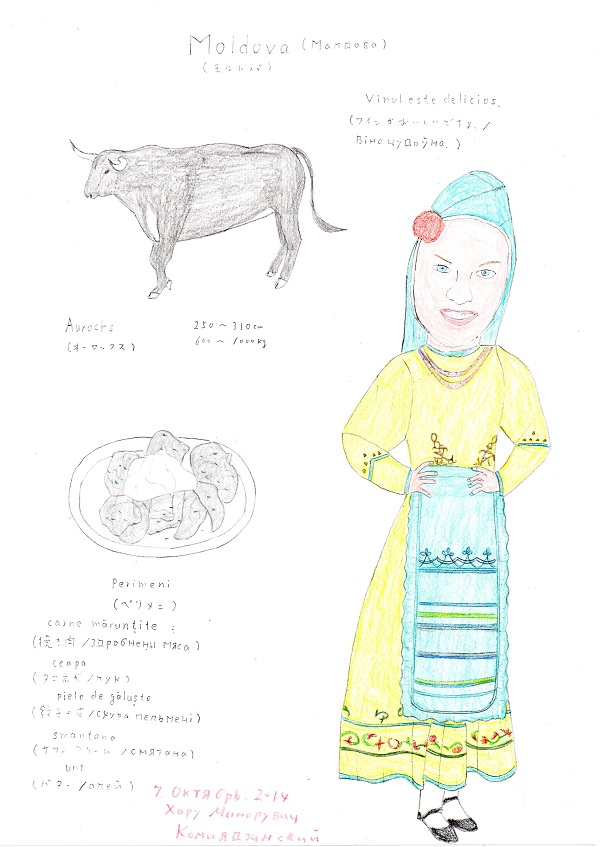 Moldova (Малдова)
(モルドバ)
Vinul este delicios.
(ワインがおいしいですよ。/
Віно цудоўна.)
Aurochs
(オーロックス)
250〜310cm
600〜1000kg
Perimeni
(ペリメニ)
carne mărunțite:
(挽き肉/здробнены мяса)
ceapa
(タマネギ/лук)
piele de găluște
(餃子の皮/скура пельмені)
smantana
(サワークリーム/смятана)
unt
(バター/алей)
7. Октябрь. 2014
Хару Минорувич
Комияджинский